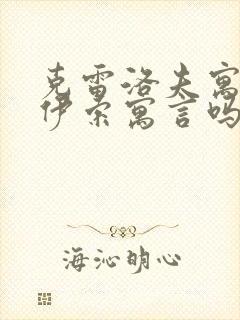 克雷洛夫寓
伊索寓言吗
海沁明心